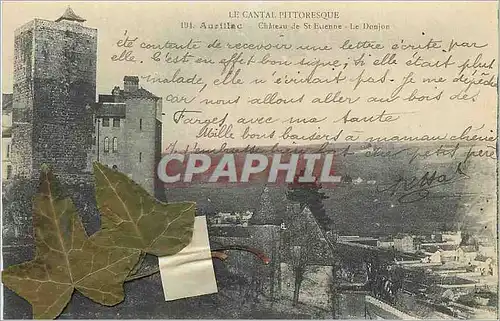 LE CANTAL PITTORESQUE
191. Aurillac Château de St Etienne - Le Donjon
été contente de recevoir une lettre écrite par
elle. C'est en effet bon signe, si elle était plus
malade, elle n'écrirait pas. Je me dépêche
car nous allons aller au bois des
Farges avec ma tante
Mille bons baisers à maman chérie
J'embrasse petit père
CPARPHIL